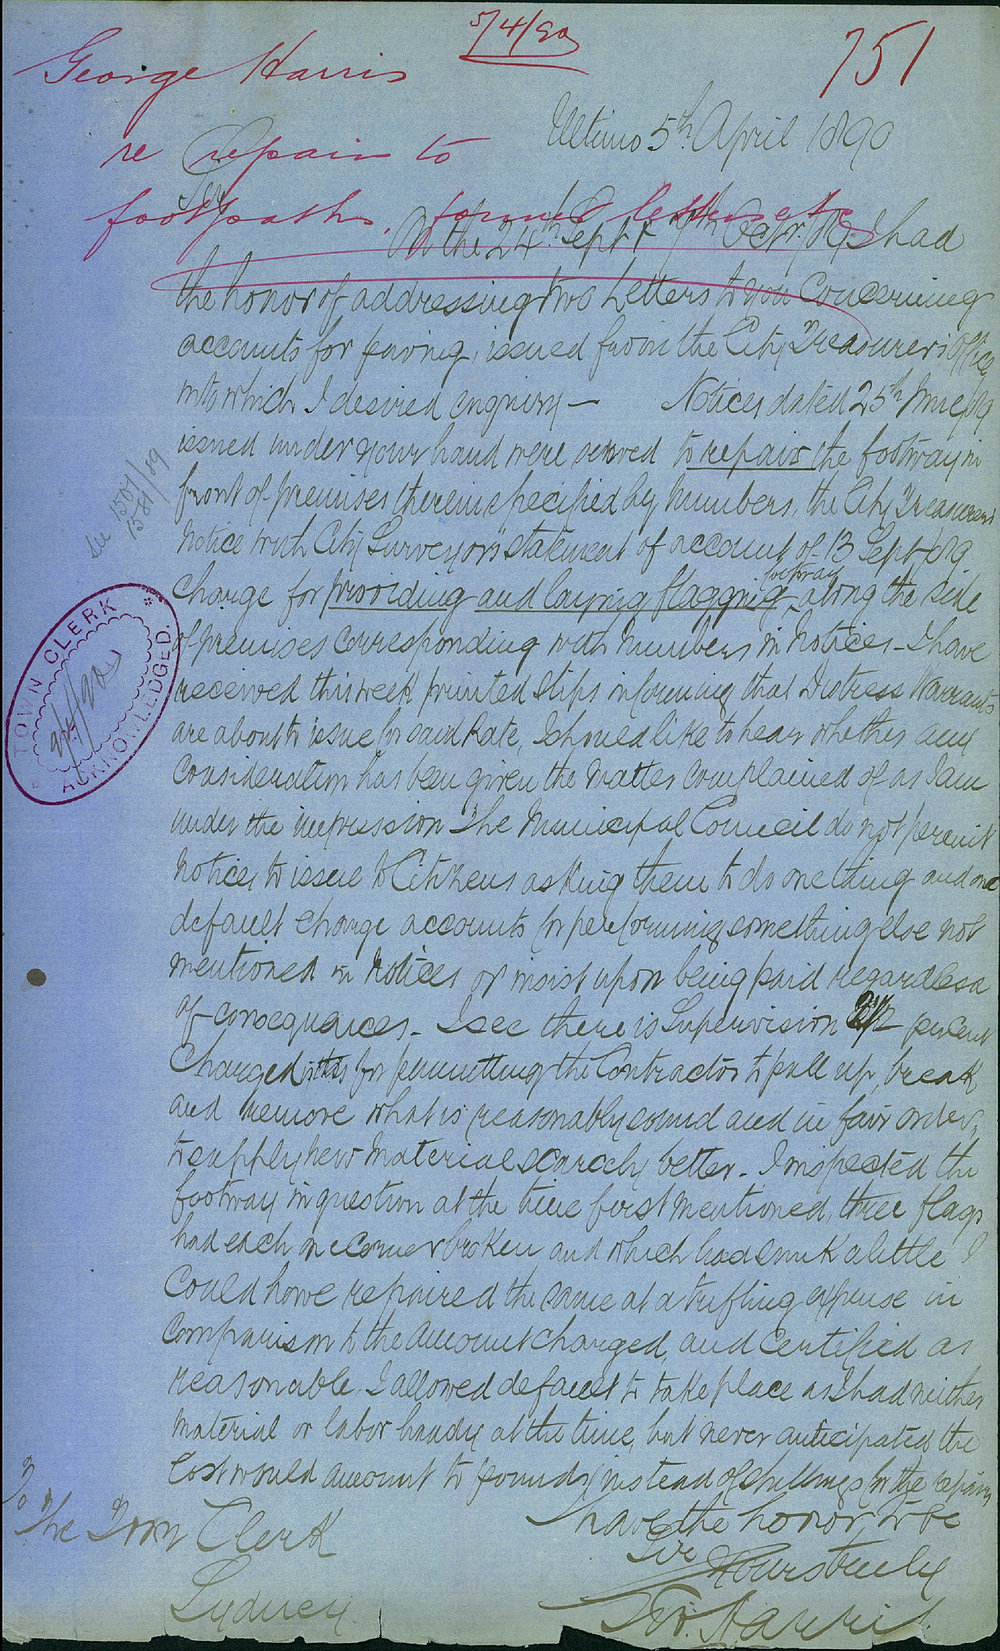 5/4/90
751
George Harris
re repair to
footpaths. former letters etc
Ultimo 5th April 1890
Sir
On the 24th Sept & 7th Octr. 89 I had
the honor of addressing two Letters to you Concerning
accounts for paving, issued from the City Treasurer's Office
into which I desired enquiry — Notices dated 25th June/89
issued under your hand were served to repair the footway in
front of premises therein specified by numbers, the City Treasurer's
Notice with City Surveyors statement of account of 13 Sept /89
Charge for providing and laying flagging footway along the side
of premises corresponding with numbers in Notices - I have
received this week printed slips informing that Distress Warrants
are about to issue for said Rate, I should like to hear whether any
Consideration has been given the matter complained of as I am
under the impression the Municipal Council do not permit
notices to issue to Citizens asking them to do one thing and on
default charge accounts for performing something else not
mentioned in Notices or insist upon being paid regardless
of consequences - I see there is Supervision 2½ percent
Charged for permitting the Contractor to pull up, break,
and remove what is reasonably sound and in fair order,
to supply new material scarcely better - I inspected the
footway in question at the time first mentioned, three flags
had each one corner broken and which had sunk a little I
Could have repaired the same at a trifling expense in
Comparison to the Amount charged, and Certified as
reasonable, I allowed default to take place as I had neither
material or labor handy at the time, but never anticipated the
Cost would amount to pounds instead of shillings for the repairs
I have the honor to be
Sir
Yours truly
Geo. Harris
To
The Town Clerk
Sydney
see 1501/89
1581/89
TOWN CLERK
ACKNOWLEDGED.